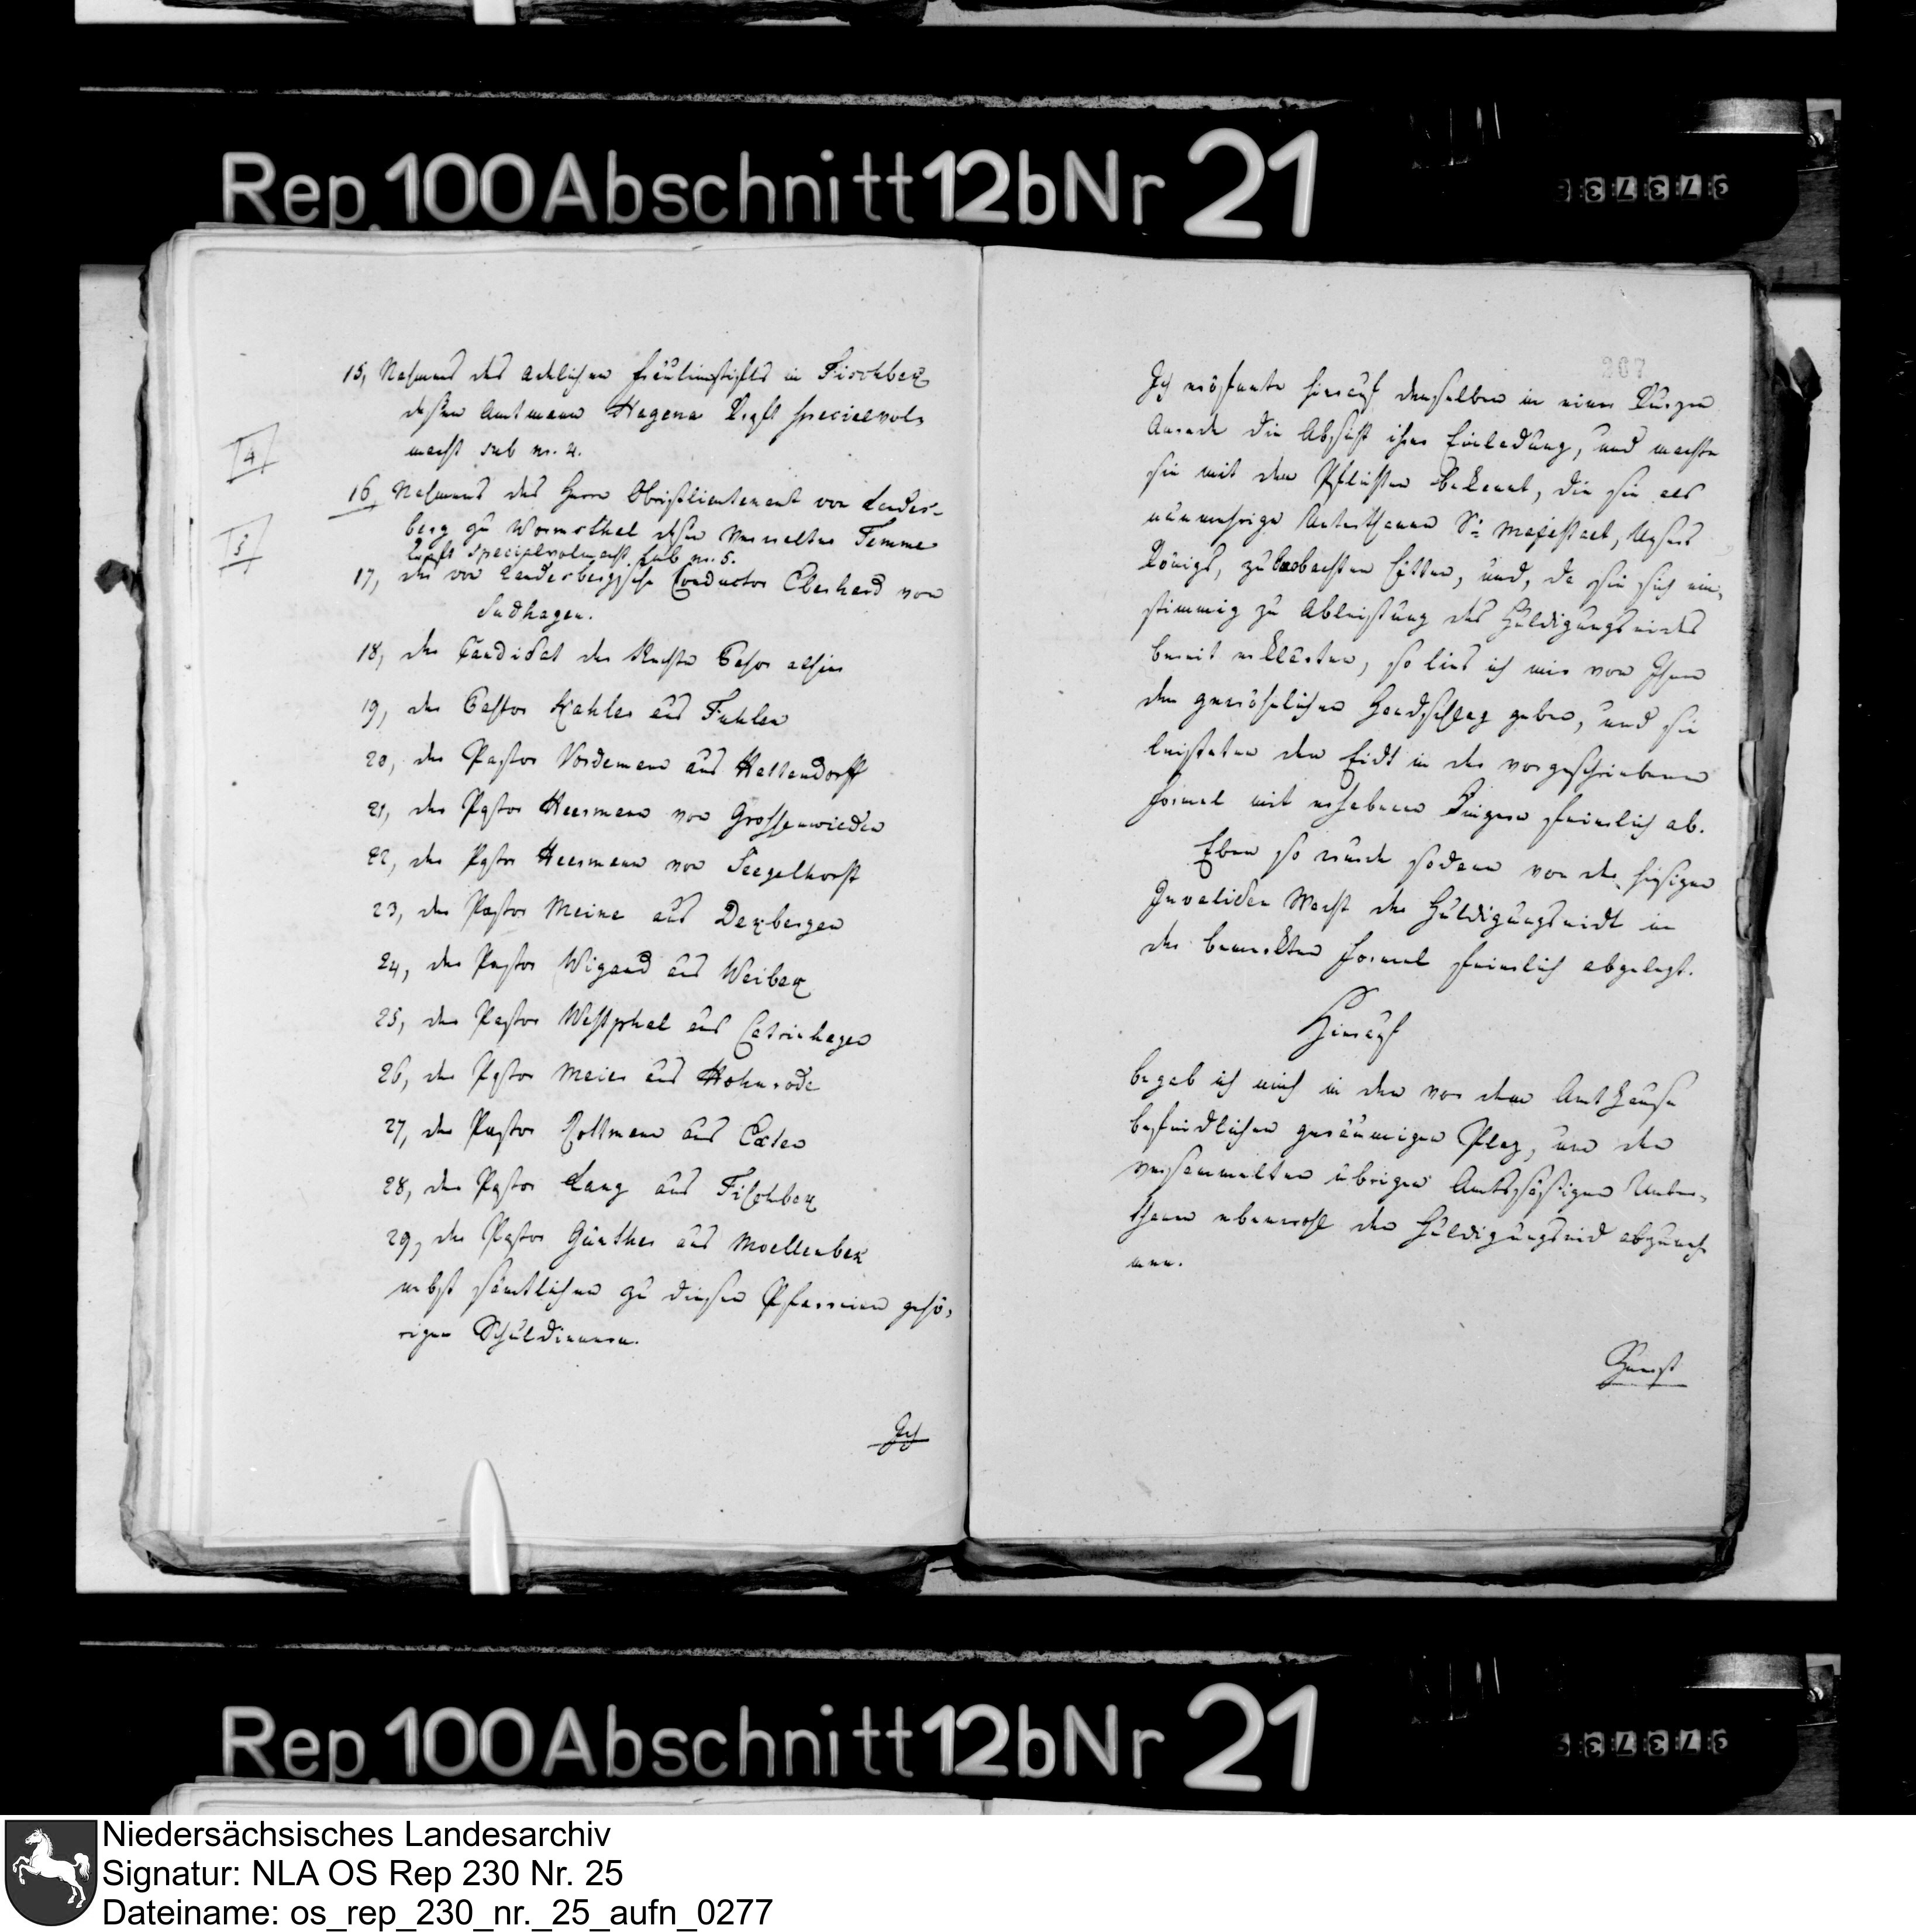 Rep. 100 Abschnitt 12b Nr 21
15, Nahmens des adelichen Fräulinstifts in Fischbek
deßen Amtmann Hagena Kraft specialvol-
macht sub nr. 4.
4
16, Nahmens des Herrn Obristlieutenant von Landes-
berg zu Wormsthal deßen Verwalter Temme
Kraft Specialvolmacht sub nr. 5.
5
17, der von Landesbergische Conductor Eberhard von
Sudhagen.
18, der Candidat der Rechte alhier
19, der Pastor Kahler aus Fuhlen
20, der Pastor Vordemann aus Hattendorff
21, der Pastor Heermann von Grossenwieden
22, der Pastor Heermann von Seegelhorst
23, der Pastor Meine aus Dekbergen
24, der Pastor Wigand aus Weibek
25, der Pastor Westphal aus Catrinhagen
26, der Pastor Meier aus Hohnrode
27, der Pastor Rottmann aus Exten
28, der Pastor Lang aus Fischbek
29, der Pastor Günther aus Moellenbek
nebst sämtlichen zu diesen Pfarreien gehö-
rigen Schuldienern.
Ich
207
Ich eröfnete hierauf denselben in einer kurzen
Anrede die Absicht ihrer Einladung, und machte
sie mit den Pflichten bekannt, die sie als
nunmehrige Unterthanen Sr. Majestaet, Unsers
Königs, zu beobachten hätten, und, da sie sich ein-
stimmig zu Ableistung des Huldigungseides
bereit erklärten, so lies ich mir von Ihnen
den gewöhnlichen Handschlag geben, und sie
leisteten den Eidt in der vorgeschriebenen
Formel mit erhabenen Fingern feierlich ab.
Eben so wurde sodann von der hiesigen
Invaliden Wacht der Huldigungseidt in
der bemerkten Formel feierlich abgelegt.
Hierauf
begab ich mich in den vor dem Amthause
befindlichen geräumigen Plaz, um den
versammelten übrigen Amtssäßigen Unter-
thanen ebenwohl den Huldigungseid abzuneh-
men.
Rep. 100 Abschnitt 12b Nr 21
Niedersächsisches Landesarchiv
Signatur: NLA OS Rep 230 Nr. 25
Dateiname: os_rep_230_nr._25_aufn_0277